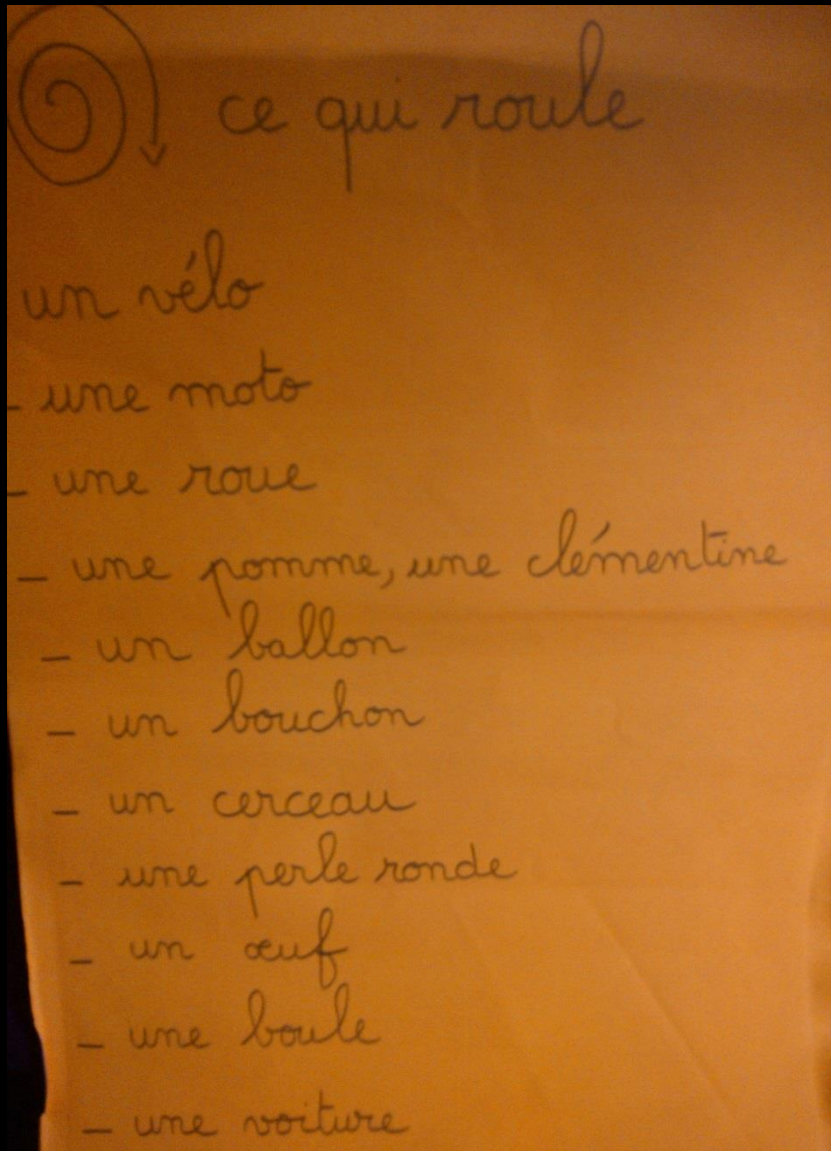 ce qui roule
un vélo
- une moto
- une roue
- une pomme, une clémentine
- un ballon
- un bouchon
- un cerceau
- une perle ronde
- un œuf
- une boule
- une voiture